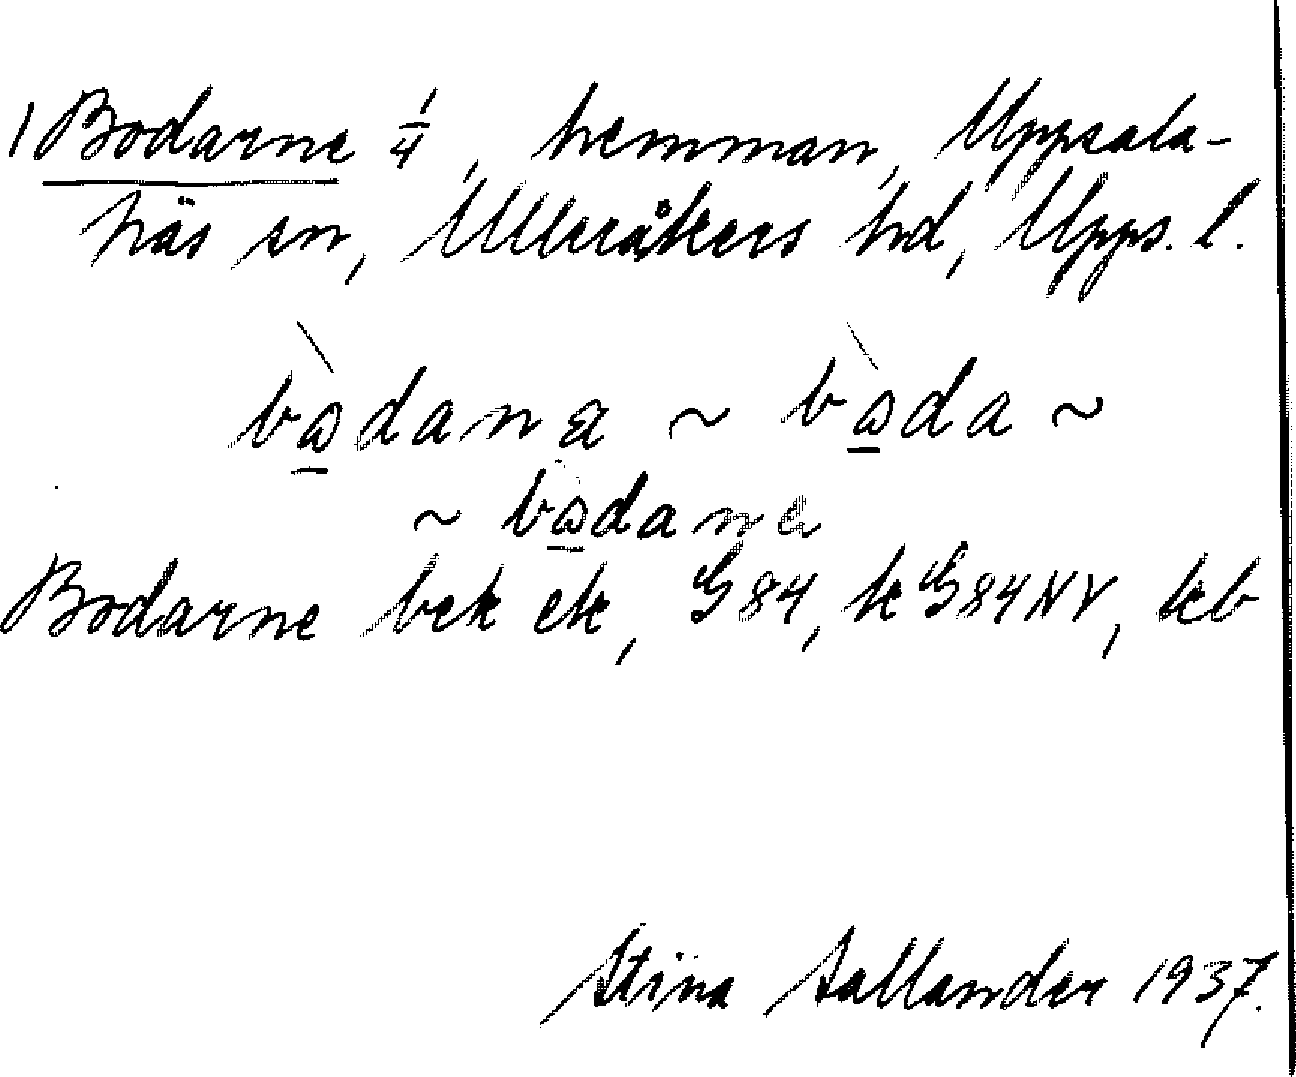 1 Bodarne 1/4, hemman, Uppsala-
näs sn, Ulleråkers hd, Upps. l.
bὼ̲danα ~ bὼ̲da ~
~ bὼ̲dana
Bodarne bek ek, G84, kG84NV, kb
Stina Sallander 1937.